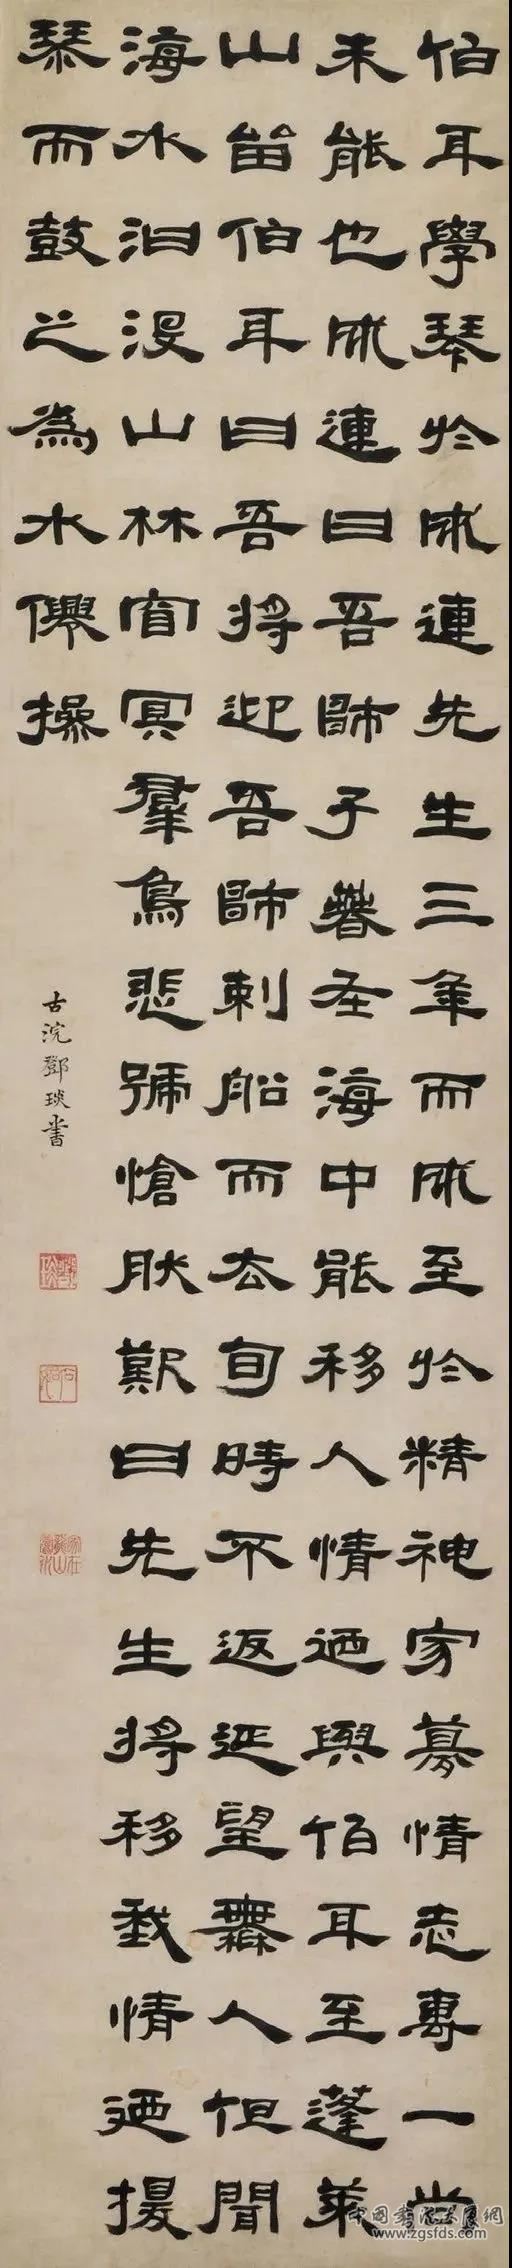 伯耳學琴於成連先生三年而成至於精神寂寞情志專一尚
未能也成連曰吾師子春在海中能移人情迺與伯耳至蓬萊
山留伯耳曰吾將迎吾師刺船而去旬時不返延望無人但聞
海水汩沒山林窅冥羣鳥悲號愴然歎曰先生將移我情迺援
琴而鼓之為水僊操
古浣鄧琰書
鄧琰
石如
家在龍山鳳水
中国书法大展網
www.zgsfds.com